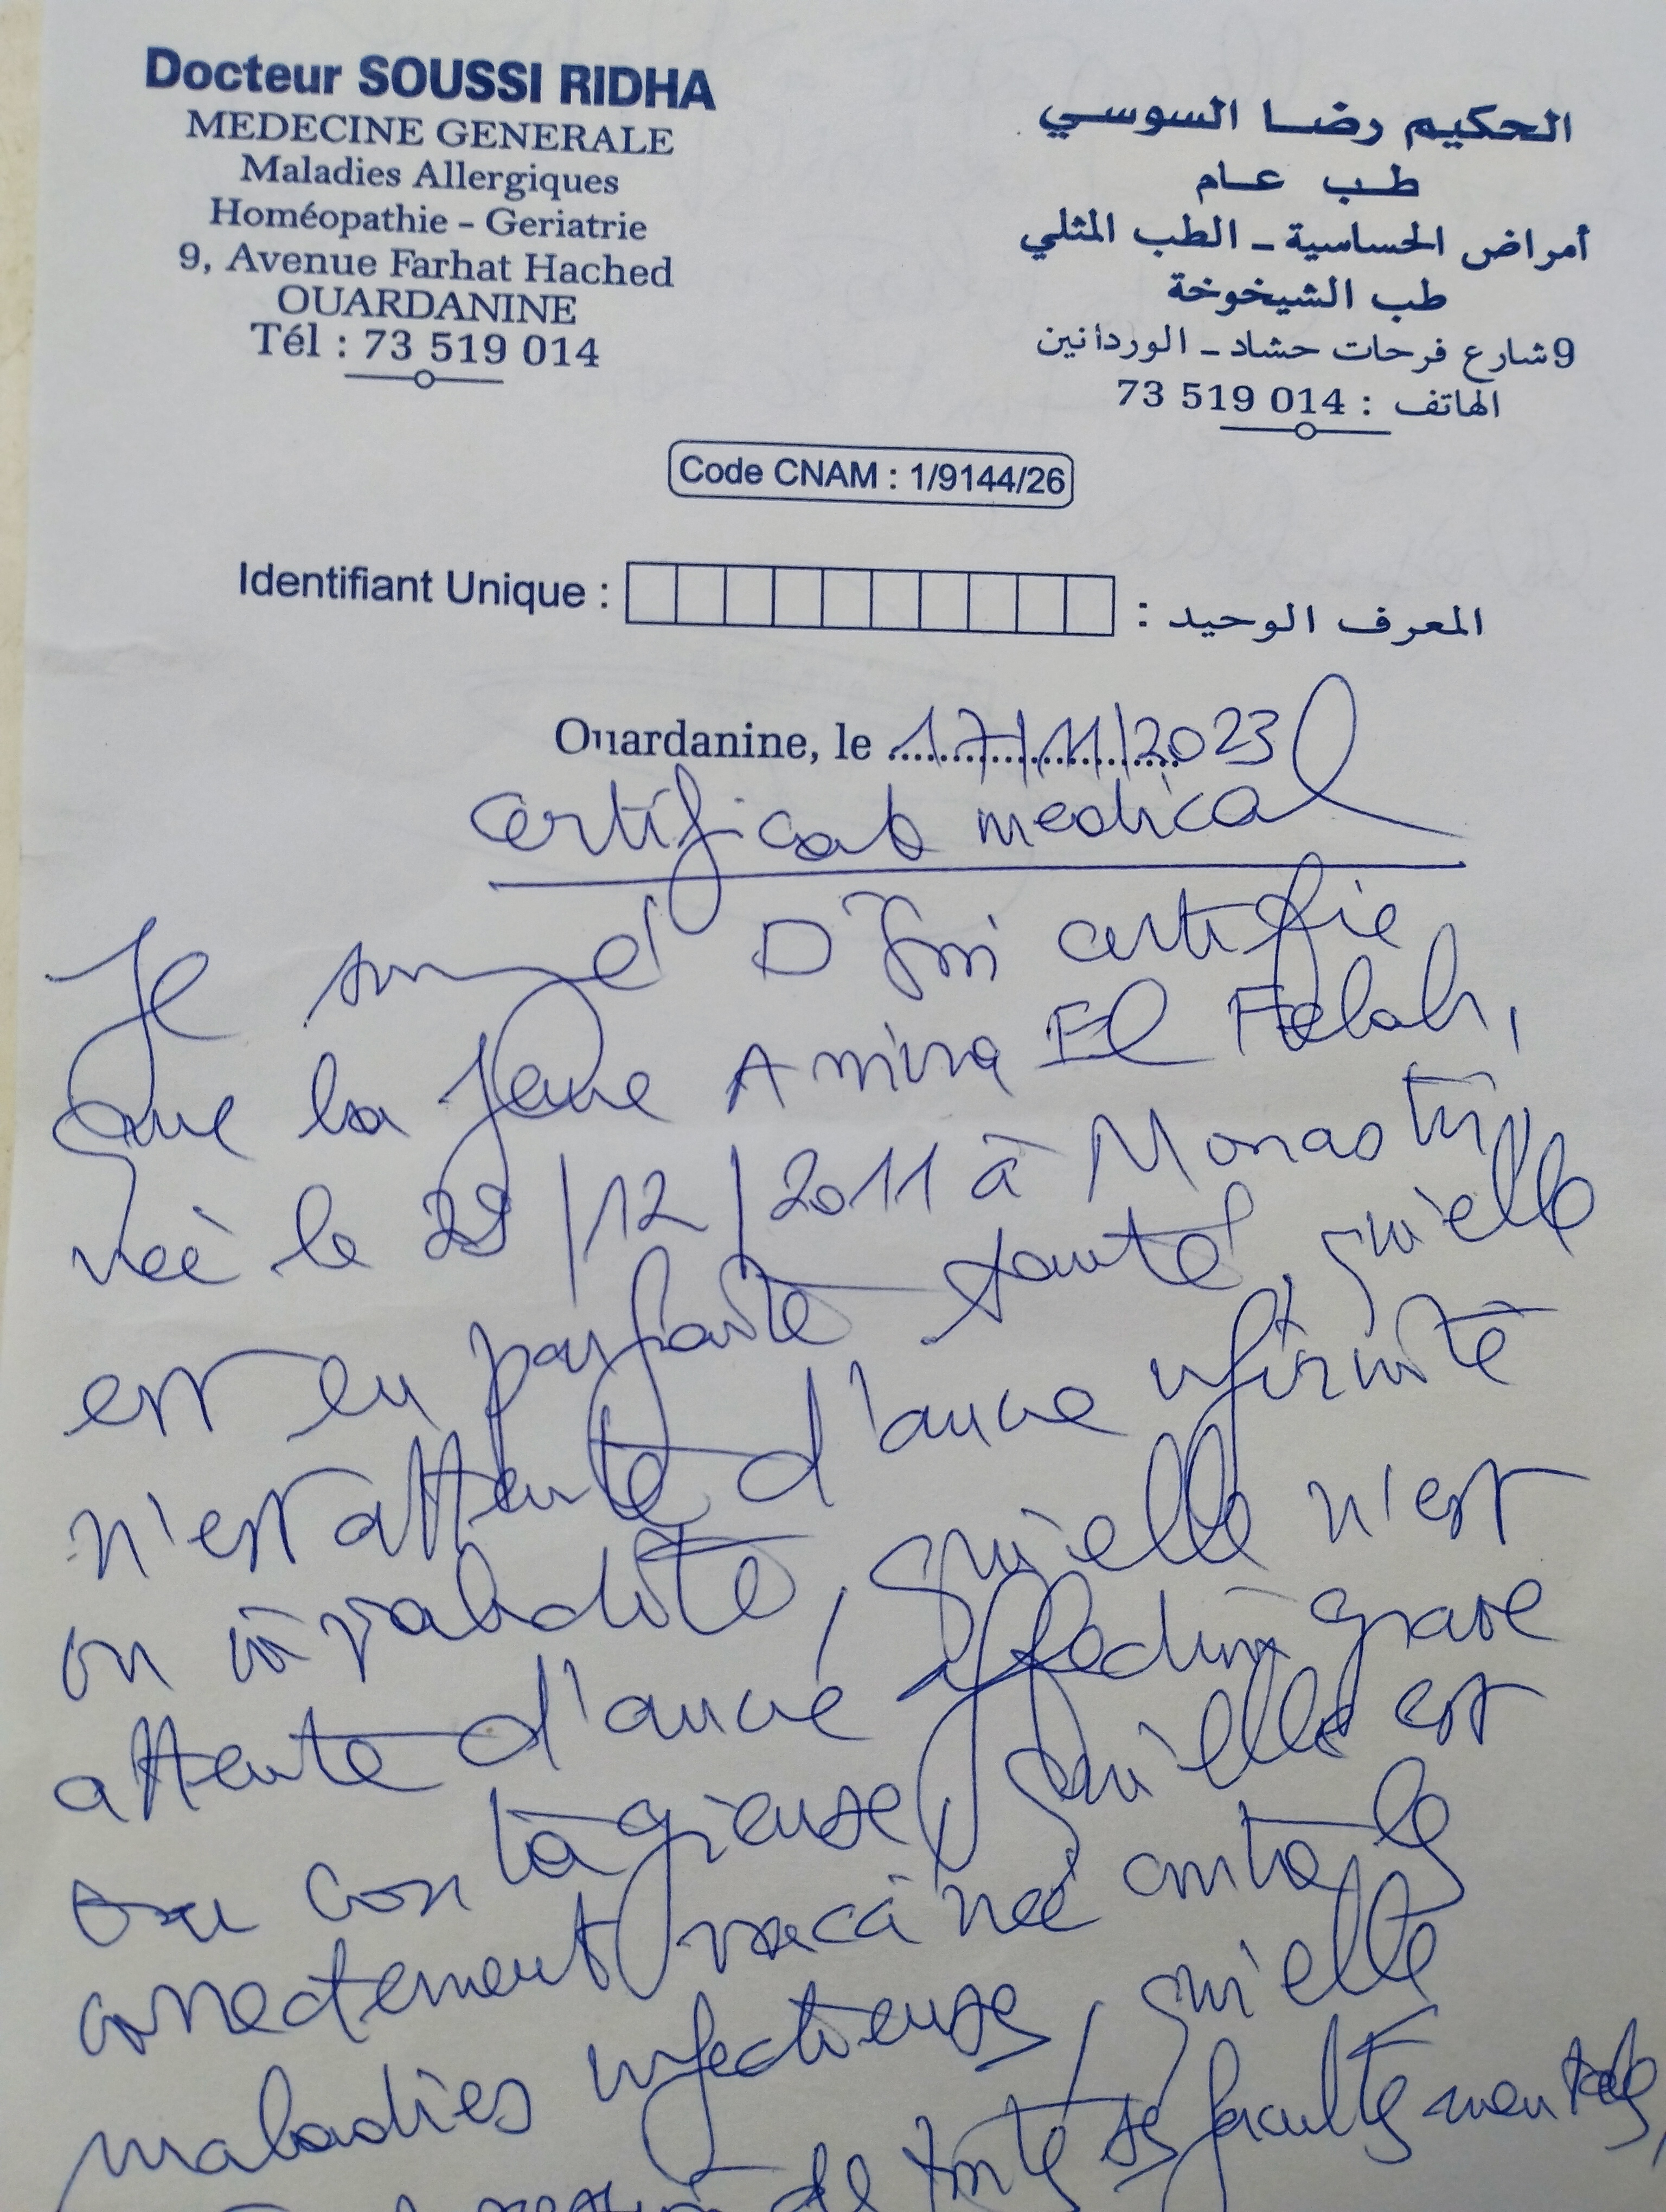 Docteur SOUSSI RIDHA
MEDECINE GENERALE
Maladies Allergiques
Homéopathie - Geriatrie
9, Avenue Farhat Hached
OUARDANINE
Tél : 73 519 014
الحكيم رضا السوسي
طب عام
أمراض الحساسية - الطب المثلي
طب الشيخوخة
9 شارع فرحات حشاد - الوردانين
الهاتف : 73 519 014
Code CNAM : 1/9144/26
Identifiant Unique : المعرف الوحيد :
Ouardanine, le 17/11/2023
certificat medical
Je certifie
que la Jeune Amina El Felah,
née le 29/12/2011 à Monastir,
est en parfaite santé, qu'elle
n'est attente d'aucune infirmité
ou invalidité, qu'elle n'est
attente d'aucune affection grave
ou contagieuse, qu'elle est
correctement vaccinée contre les
maladies infectieuses, qu'elle
de toute ses facultés mentales,